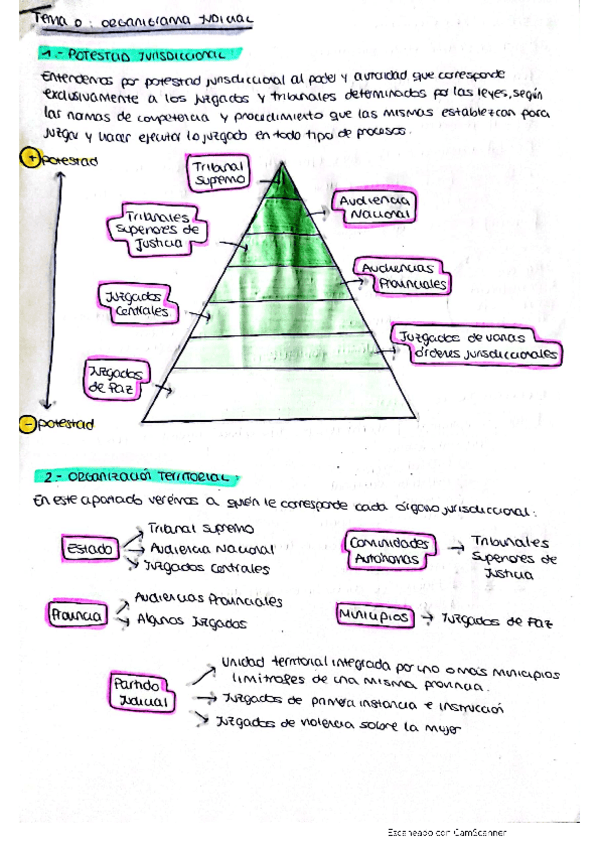 Tema 0: ORGANIGRAMA JUDICIAL
1.- POTESTAD JURISDICCIONAL:
Entendemos por potestad jurisdiccional al poder y autoridad que corresponde
exclusivamente a los juzgados y tribunales determinados por las leyes, según
las normas de competencia y procedimiento que las mismas establezcan para
juzgar y hacer ejecutar lo juzgado en todo tipo de procesos.
+ potestad
Tribunal
Supremo
Audiencia
Nacional
Tribunales
Superiores de
Justicia
Audiencias
Provinciales
Juzgados
Centrales
Juzgados de varios
órdenes jurisdiccionales
Juzgados
de Paz
- potestad
2.- ORGANIZACIÓN TERRITORIAL:
En este apartado veremos a quién le corresponde cada órgano jurisdiccional:
Estado
Tribunal Supremo
Audiencia Nacional
Juzgados Centrales
Comunidades
Autónomas
Tribunales
Superiores de
Justicia
Provincia
Audiencias Provinciales
Algunos Juzgados
Municipios
Juzgados de Paz
Partido
Judicial
Unidad territorial integrada por uno o más municipios
limítrofes de una misma provincia.
Juzgados de primera instancia e instrucción
Juzgados de violencia sobre la mujer
Escaneado con CamScanner